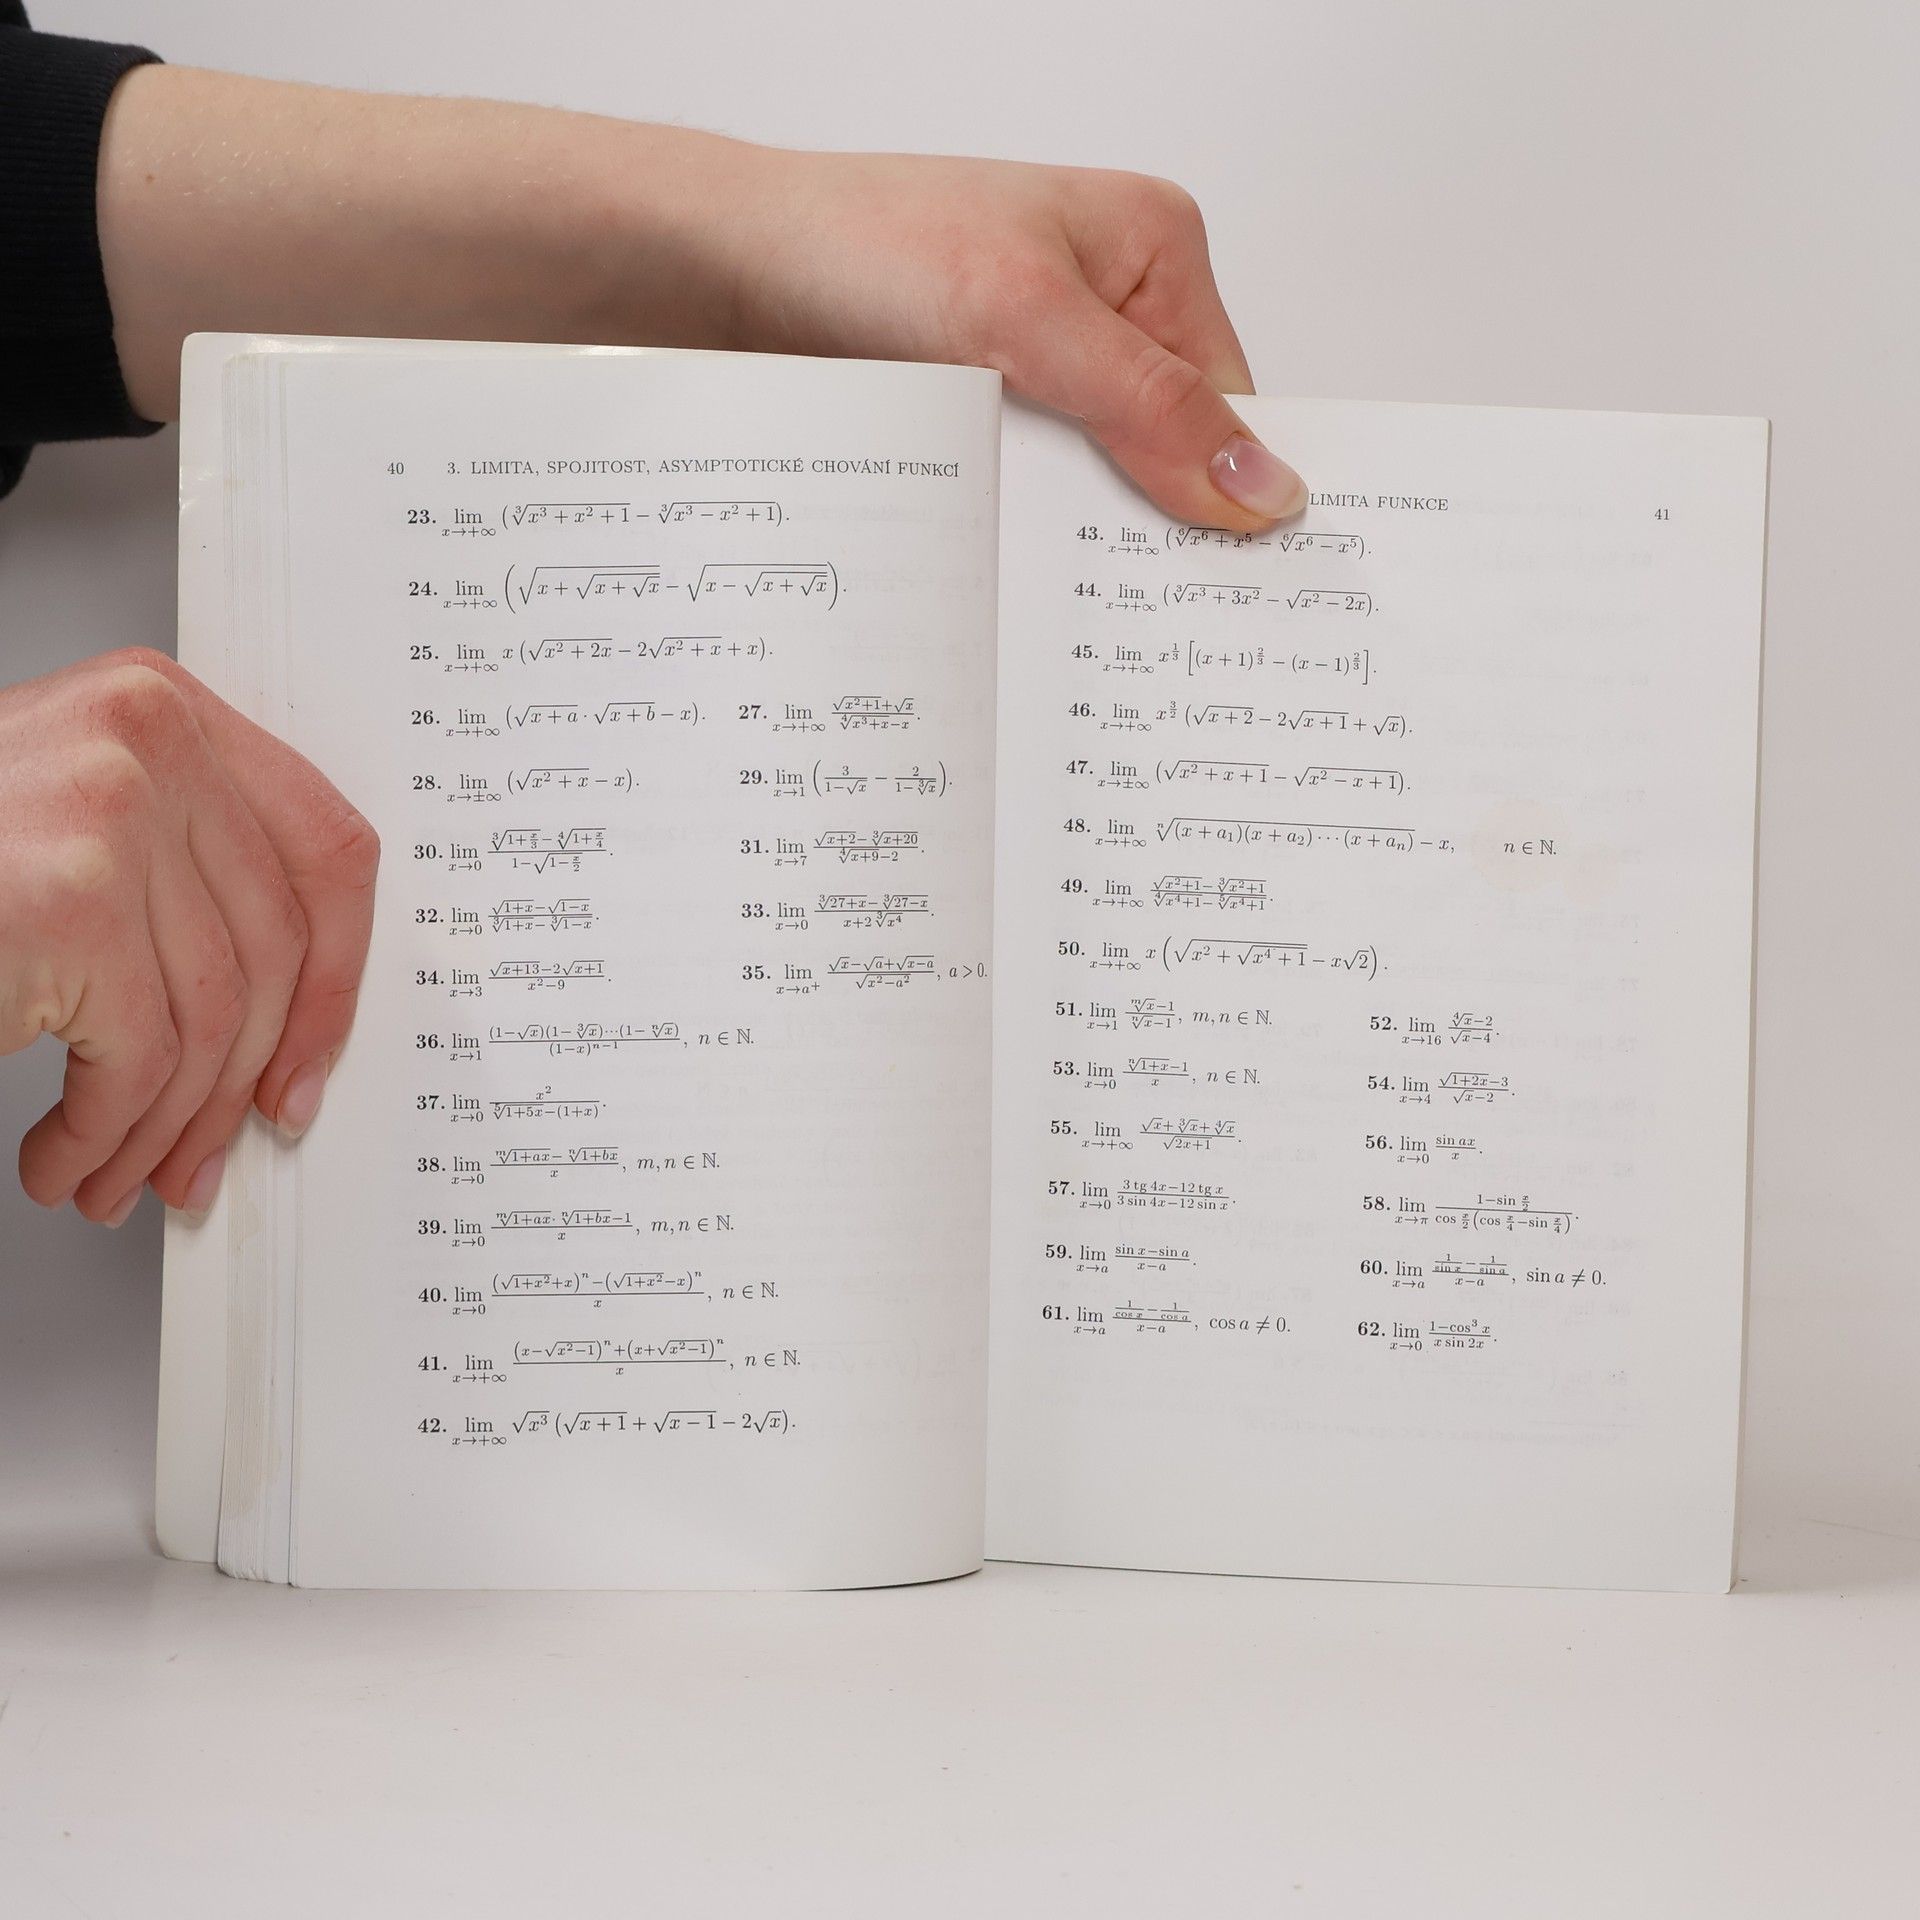 40 3. LIMITA, SPOJITOST, ASYMPTOTICKÉ CHOVÁNÍ FUNKCÍ
23. lim_{x→+∞} (∛(x³ + x² + 1) − ∛(x³ − x² + 1)).
24. lim_{x→+∞} (√(x + √(x + √x)) − √(x − √(x + √x))).
25. lim_{x→+∞} x (√(x² + 2x) − 2√(x² + x) + x).
26. lim_{x→+∞} (√(x + a) · √(x + b) − x). 27. lim_{x→+∞} (√(x²+1)+√x)/(∜(x³+x)−x).
28. lim_{x→±∞} (√(x² + x) − x). 29. lim_{x→1} (3/(1−√x) − 2/(1−∛x)).
30. lim_{x→0} (∛(1+x/3)−∜(1+x/4))/(1−√(1−x/2)). 31. lim_{x→7} (√(x+2)−∛(x+20))/(∜(x+9)−2).
32. lim_{x→0} (√(1+x)−√(1−x))/(∛(1+x)−∛(1−x)). 33. lim_{x→0} (∛(27+x)−∛(27−x))/(x+2∛(x⁴)).
34. lim_{x→3} (√(x+13)−2√(x+1))/(x²−9). 35. lim_{x→a⁺} (√x−√a+√(x−a))/√(x²−a²), a > 0.
36. lim_{x→1} ((1−√x)(1−∛x)···(1−ⁿ√x))/(1−x)ⁿ⁻¹, n ∈ ℕ.
37. lim_{x→0} x²/(⁵√(1+5x)−(1+x)).
38. lim_{x→0} (ᵐ√(1+ax)−ⁿ√(1+bx))/x, m, n ∈ ℕ.
39. lim_{x→0} (ᵐ√(1+ax)·ⁿ√(1+bx)−1)/x, m, n ∈ ℕ.
40. lim_{x→0} ((√(1+x²)+x)ⁿ−(√(1+x²)−x)ⁿ)/x, n ∈ ℕ.
41. lim_{x→+∞} ((x−√(x²−1))ⁿ+(x+√(x²−1))ⁿ)/x, n ∈ ℕ.
42. lim_{x→+∞} √(x³) (√(x + 1) + √(x − 1) − 2√x).
LIMITA FUNKCE 41
43. lim_{x→+∞} (⁶√(x⁶ + x⁵) − ⁶√(x⁶ − x⁵)).
44. lim_{x→+∞} (∛(x³ + 3x²) − √(x² − 2x)).
45. lim_{x→+∞} x^{1/3} [(x + 1)^{2/3} − (x − 1)^{2/3}].
46. lim_{x→+∞} x^{3/2} (√(x + 2) − 2√(x + 1) + √x).
47. lim_{x→±∞} (√(x² + x + 1) − √(x² − x + 1)).
48. lim_{x→+∞} ⁿ√((x + a₁)(x + a₂) ··· (x + aₙ)) − x, n ∈ ℕ.
49. lim_{x→+∞} (√(x²+1)−∛(x²+1))/(∜(x⁴+1)−⁵√(x⁴+1)).
50. lim_{x→+∞} x (√(x² + √(x⁴ + 1)) − x√2).
51. lim_{x→1} (ᵐ√x−1)/(ⁿ√x−1), m, n ∈ ℕ. 52. lim_{x→16} (∜x−2)/(√x−4).
53. lim_{x→0} (ⁿ√(1+x)−1)/x, n ∈ ℕ. 54. lim_{x→4} (√(1+2x)−3)/(√x−2).
55. lim_{x→+∞} (√x+∛x+∜x)/√(2x+1). 56. lim_{x→0} (sin ax)/x.
57. lim_{x→0} (3 tg 4x−12 tg x)/(3 sin 4x−12 sin x). 58. lim_{x→π} (1−sin x/2)/(cos x/2 (cos x/4−sin x/4)).
59. lim_{x→a} (sin x−sin a)/(x−a). 60. lim_{x→a} (1/sin x − 1/sin a)/(x−a), sin a ≠ 0.
61. lim_{x→a} (1/cos x − 1/cos a)/(x−a), cos a ≠ 0. 62. lim_{x→0} (1−cos³ x)/(x sin 2x).